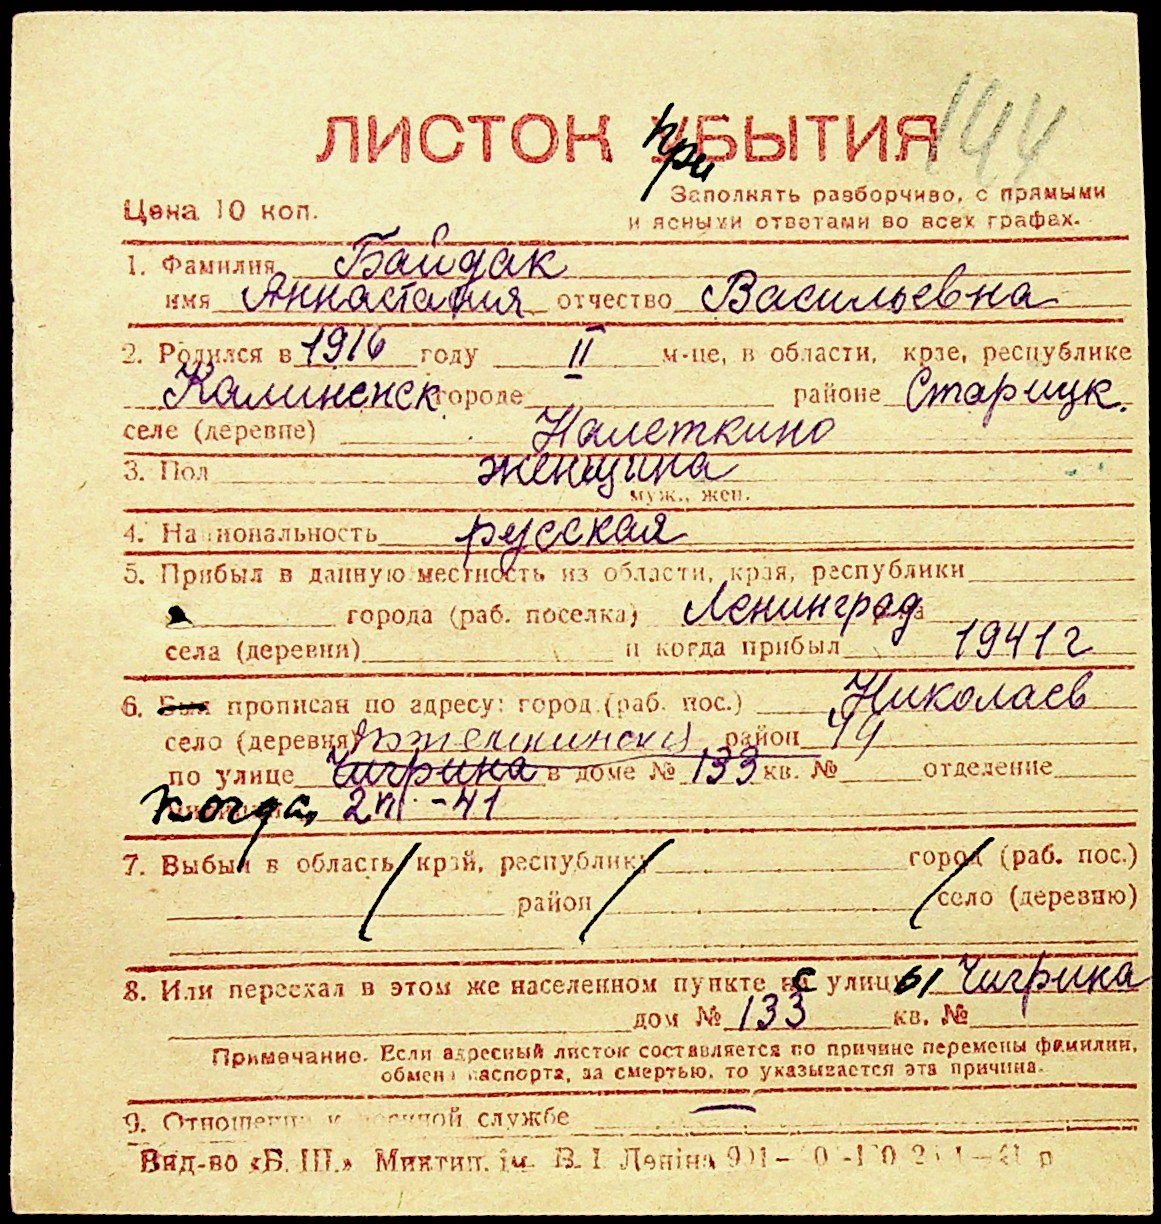 144
ЛИСТОК УБЫТИЯ
при
Цена 10 коп.
Заполнять разборчиво, с прямыми
и ясными ответами во всех графах.
1. Фамилия Байдак
имя Аннастасия отчество Васильевна
2. Родился в 1916 году II м-це, в области, крае, республике
Калиненск городе районе Старицк.
селе (деревне) Налеткино
3. Пол женщина
муж., жен.
4. Национальность русская
5. Прибыл в данную местность из области, края, республики
города (раб. поселка) Ленинград
села (деревни) и когда прибыл 1941 г
6. Был прописан по адресу: город (раб. пос.) Николаев
село (деревня) район 44
по улице Чигрина в доме № 133 кв. № отделение
когда 2 -41
7. Выбыл в область, край, республику город (раб. пос.)
район село (деревню)
8. Или переехал в этом же населенном пункте на с улицы Чигрина
дом № 133 кв. №
Примечание. Если адресный листок составляется по причине перемены фамилии,
обмена паспорта, за смертью, то указывается эта причина.
9. Отношение к военной службе —
Вид-во «Б. Ш.» Миктип. ім. В. І. Леніна